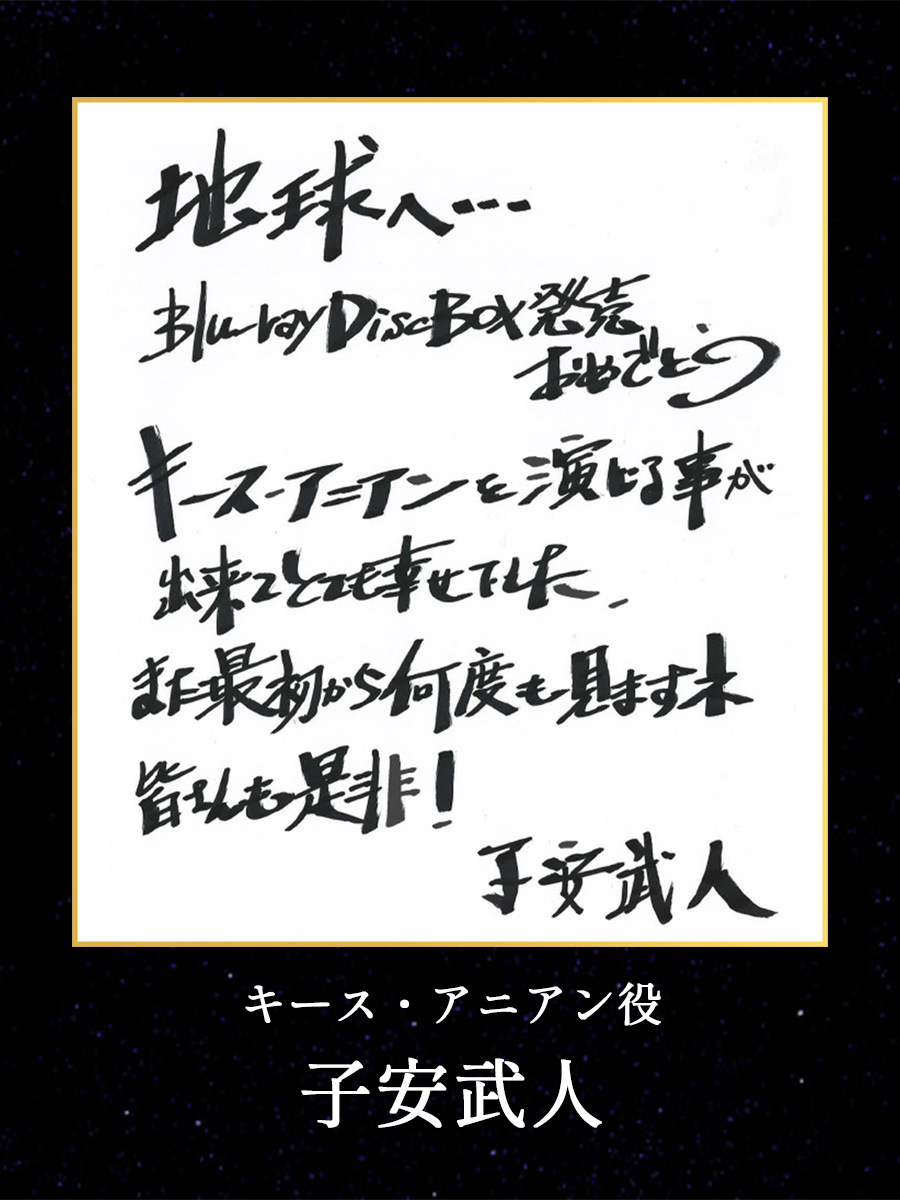 地球へ…
Blu-ray Disc Box発売
おめでとう
キース・アニアンを演じる事が
出来てとても幸せでした。
また最初から何度も見ますネ
皆さんも是非!
子安武人
キース・アニアン役
子安武人